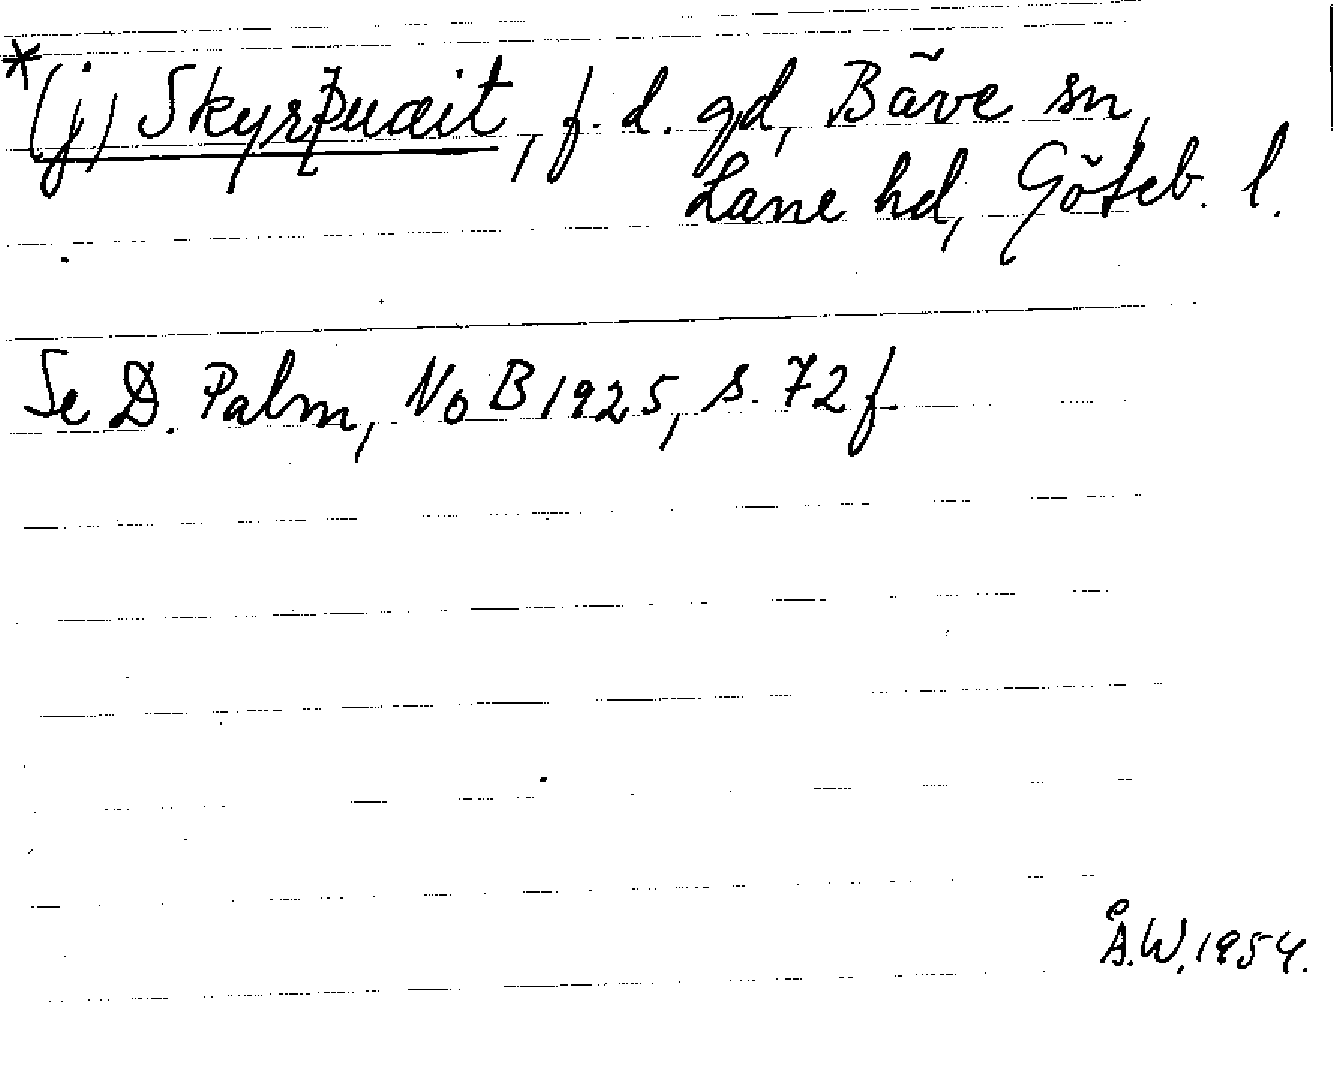 *(j) Skyrþuæit, f. d. gd, Bäve sn,
Lane hd, Göteb. l.
Se D. Palm, NoB 1925, s. 72 f
Å.W. 1954.